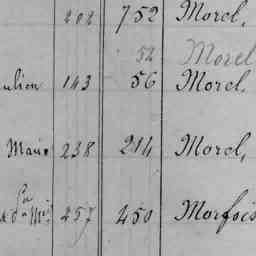 202 752 Morel,
52 Morel
ulien 143 56 Morel,
Marie 238 214 Morel,
257 450 Morfois